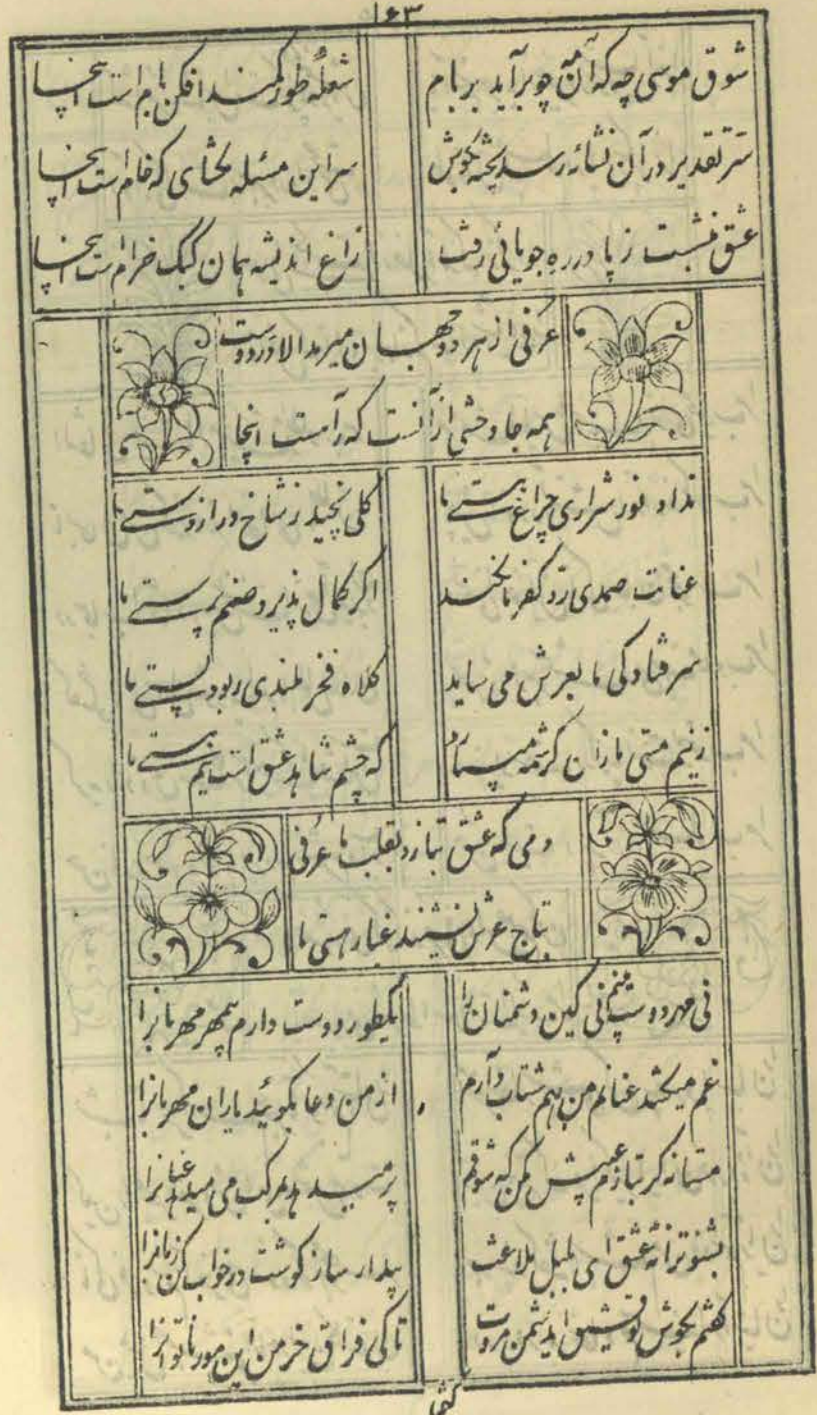 ۱۶۳
شوق موسی چه که آن مه چو برآید بر بام شعلهٔ طور کمند افکن بام است اینجا
سر تقدیر در آن نشائه رسد پخته بگوش سر این مسئله نگشای که خام است اینجا
عشق ننشست ز پا در ره جویائی دوست زاغ اندیشه همان کبک خرام است اینجا
عرفی از هر دو جهان میرمد الا در دوست
همه جا وحشی از آنست که رامست اینجا
نداد نور شراری چراغ هستی ما گلی نچید ز شاخ دراز دستی ما
عنایت صمدی رد کفر ما نکند اگر کمال پذیرد صنم پرستی ما
سر فتادگی ما بعرش می ساید کلاه فخر بلندی ربود پستی ما
ز نیم مستی ما زان کرشمه میبارد که چشم شاهد عشق است نیم مستی ما
دمی که عشق بتازد بقلب ما عرفی
بتاج عرش نشیند غبار هستی ما
نی مهر دوست بینم نی کین دشمنان را یکطور دوست دارم بیمهر مهربانرا
غم میکشد عنانم من هم شتاب دارم از من دعا بگوئید یاران مهربانرا
مستانه گر بتازم عیبش مکن که شوقم پر میدهد بمرکب می میدهد عنانرا
بشنو ترانهٔ عشق ای بلبل بلاغت بیدار ساز گوشت در خواب کن زبانرا
گفتم بگوش توفیق ای دشمن مروت تا کی فراق خرمن این مور ناتوانرا
گفتا